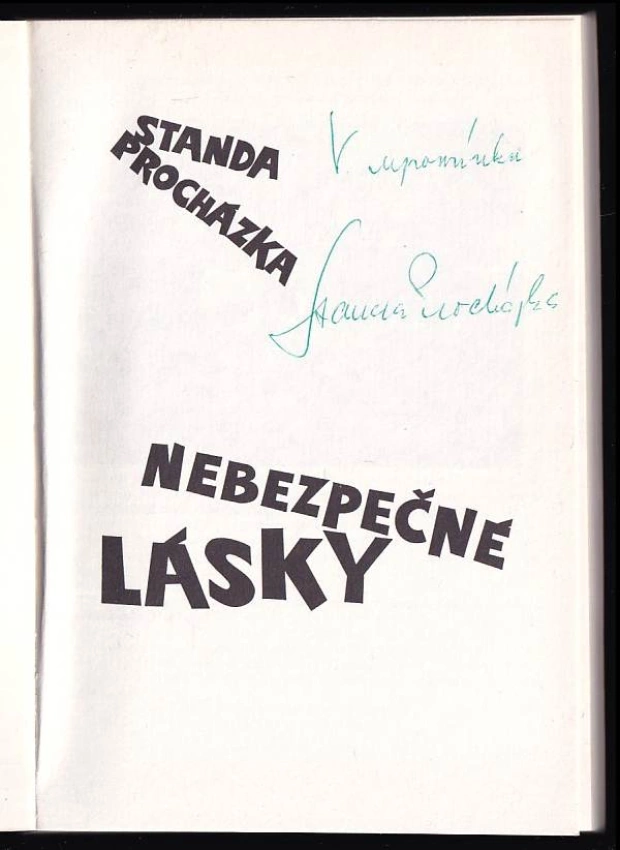 STANDA
PROCHÁZKA
V upomínku
Standa Procházka
NEBEZPEČNÉ
LÁSKY